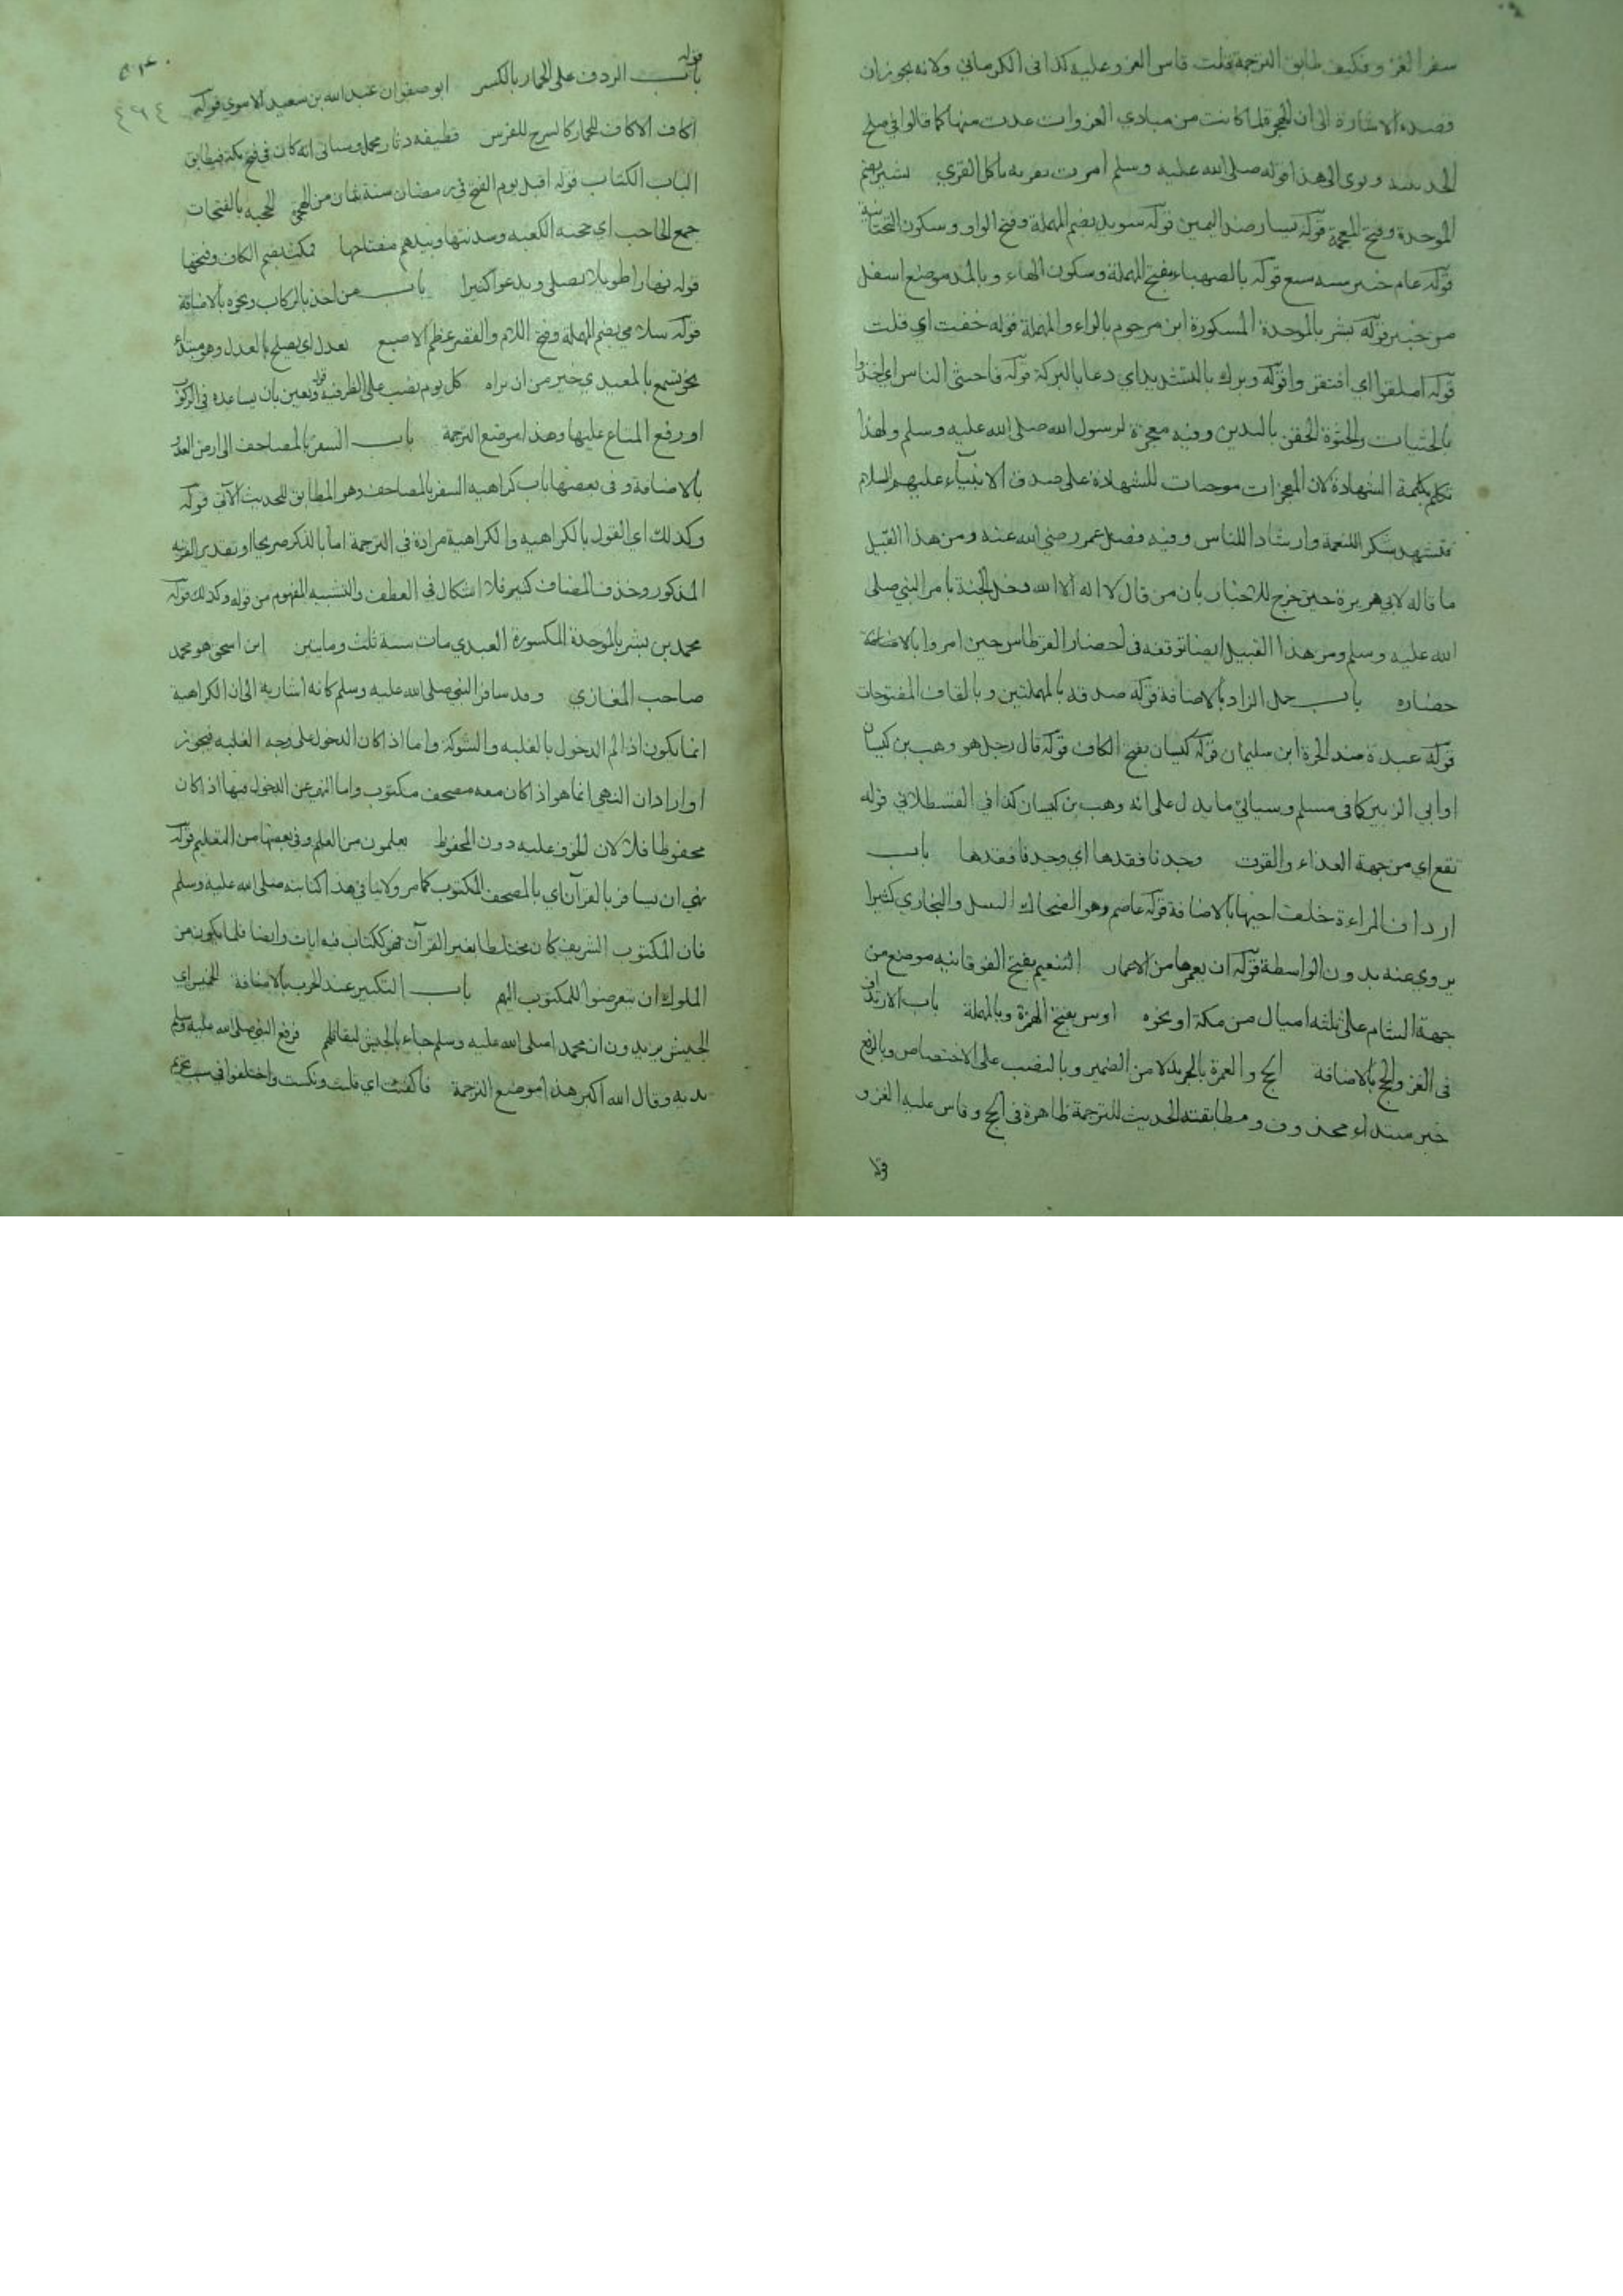 سفر الغزو فكيف طابق الترجمة قلت قاس الغزو عليه كذا في الكرماني ولانه يجوز ان
قصده الاشارة الى ان الهجرة لما كانت من مبادي الغزوات عدت منها كما قالوا في صلح
الحديبية ويومي الى هذا قوله صلى الله عليه وسلم امرت بقرية تاكل القرى بشير بضم
الموحدة وفتح المعجمة قوله يسار ضد اليمين قوله سويد بضم المهملة وفتح الواو وسكون التحتانية
قوله عام خيبر سنة سبع قوله بالصهباء بفتح المهملة وسكون الهاء وبالمد موضع اسفل
من خيبر قوله بشر بالموحدة المكسورة ابن مرحوم بالراء والمهملة قوله خفت اي قلت
قوله املقوا اي افتقروا قوله وبرك بالتشديد اي دعا بالبركة قوله فاحتثى الناس اي اخذوا
بالحثيات والحثوة الحفن باليدين وفيه معجزة لرسول الله صلى الله عليه وسلم ولهذا
تكلم بكلمة الشهادة لان المعجزات موجبات للشهادة على صدق الانبياء عليهم السلام
فتشهد شكر النعمة وارشادا للناس وفيه فضل عمر رضي الله عنه ومن هذا القبيل
ما قاله لابي هريرة حين خرج للاخبار بان من قال لا اله الا الله دخل الجنة بامر النبي صلى
الله عليه وسلم ومن هذا القبيل ايضا توقفه في احضار القرطاس حين امروا بالاضافة
حضاره باب حمل الزاد بالاضافة قوله صدقة بالمهملتين وبالقاف المفتوحات
قوله عبدة ضد الحرة ابن سليمان قوله كيسان بفتح الكاف قوله قال رجل هو وهب بن كيسان
او ابي الزبير كما في مسلم وسياتي ما يدل على انه وهب بن كيسان كذا في القسطلاني قوله
تقع اي من جهة الغذاء والقوت وجدنا فقدها اي وجدنا فقدها باب
ارداف المراءة خلف اخيها بالاضافة قوله عاصم وهو الضحاك النبيل والبخاري كثيرا
يروي عنه بدون الواسطة قوله ان يعمرها من الاعمار التنعيم بفتح الفوقانية موضع من
جهة الشام على ثلثة اميال من مكة او نحوه اوس بفتح الهمزة وبالمهملة باب الارتداف
في الغزو والحج بالاضافة الحج والعمرة بالجر بدلا من الضمير وبالنصب على الاختصاص وبالرفع
خبر مبتداء محذوف ومطابقته الحديث للترجمة ظاهرة في الحج وقاس عليه الغزو
قوله
باب الردف على الحمار بالكسر ابو صفوان عبد الله بن سعيد الاموي قوله
٤٦٤
اكاف الاكاف للحمار كالسرج للفرس قطيفة دثار مخمل وسياتي انه كان في فتح مكة فيطابق
الباب الكتاب قوله اقبل يوم الفتح في رمضان سنة ثمان من الهجرة الحجبة بالفتحات
جمع الحاجب اي حجبة الكعبة وسدنتها وبيدهم مفتاحها فمكث بضم الكاف وفتحها
قوله نهارا طويلا يصلي ويدعو اكثيرا باب من اخذ بالركاب ونحوه بالاضافة
قوله سلامى بضم المهملة وفتح اللام والقصر عظم الاصبع يعدل اي يصلح بالعدل وهو مبتداء
نحو تسمع بالمعيدي خير من ان تراه كل يوم نصب على الظرفية قوله ويعين بان يساعده في الركوب
او رفع المتاع عليها وهذا موضع الترجمة باب السفر بالمصاحف الى ارض العدو
بالاضافة وفي بعضها باب كراهية السفر بالمصاحف وهو المطابق للحديث الآتي قوله
وكذلك اي القول بالكراهية والكراهية مرادة في الترجمة اما بالذكر صريحا او بتقدير القرينة
المذكور وحذف المضاف كثير فلا اشكال في العطف والتشبيه المفهوم من قوله وكذلك قوله
محمد بن بشر بالموحدة المكسورة العبدي مات سنة ثلث ومايتين ابن اسحق هو محمد
صاحب المغازي وقد سافر النبي صلى الله عليه وسلم كانه اشارية الى ان الكراهية
انما يكون اذا لم الدخول بالغلبة والشوكة واما اذا كان الدخول على وجه الغلبة فيجوز
او اراد ان النهي انما هو اذا كان معه مصحف مكتوب واما النهي عن الدخول فيها اذا كان
محفوظا فلا لان الخوف عليه دون المحفوظ يعلمون من العلم وفي بعضها من التعليم قوله
نهى ان يسافر بالقرآن اي بالمصحف المكتوب كما مر ولاينافي هذا كتابته صلى الله عليه وسلم
فان المكتوب الشريف كان مختلطا بغير القرآن فهو ككتاب فيه ايات وايضا قلما يكون من
الملوك ان يتعرضوا للمكتوب اليهم باب التكبير عند الحرب بالاضافة الخميس اي
الجيش يريدون ان محمدا صلى الله عليه وسلم جاء بالجيش ليقاتلهم فرفع النبي صلى الله عليه وسلم
يديه وقال الله اكبر هذا موضع الترجمة فاكفئت اي قلبت ونكست واختلفوا في سبب تحريم